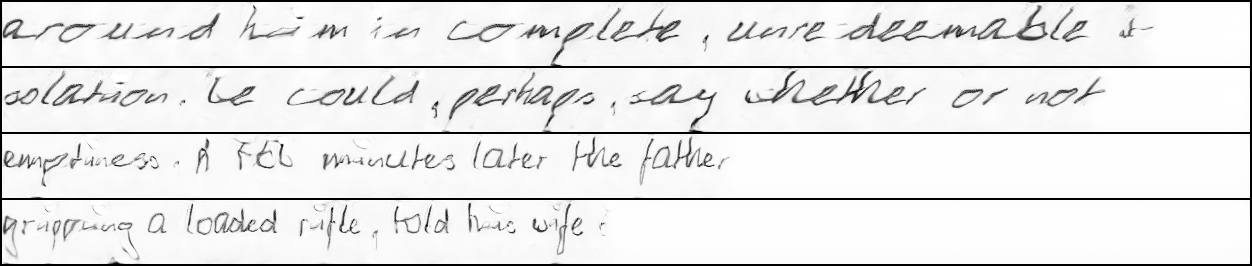 around him in complete, unredeemable i-
solation. he could, perhaps, say whether or not
emptiness. A few minutes later the father
gripping a loaded rifle, told his wife :